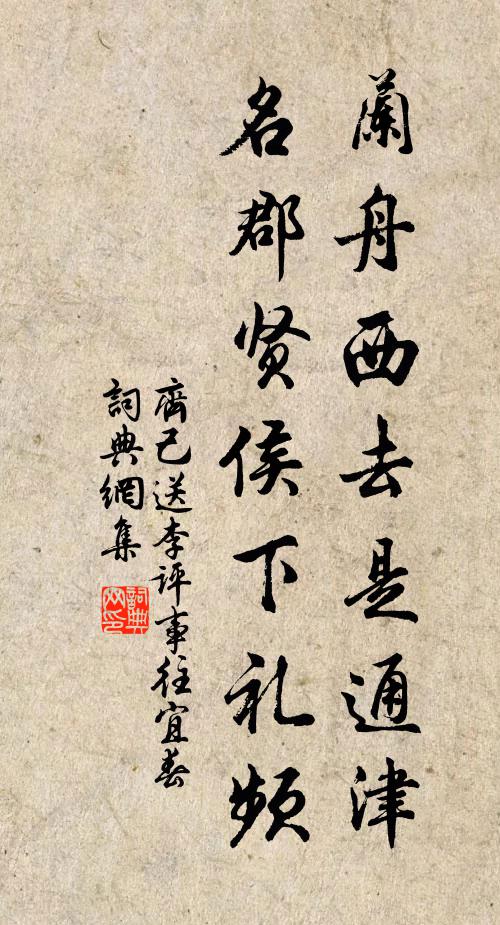 蘭舟西去是通津
名郡贤侯下礼頻
齊己送李评事往宜春
詞典網集
詞典网印